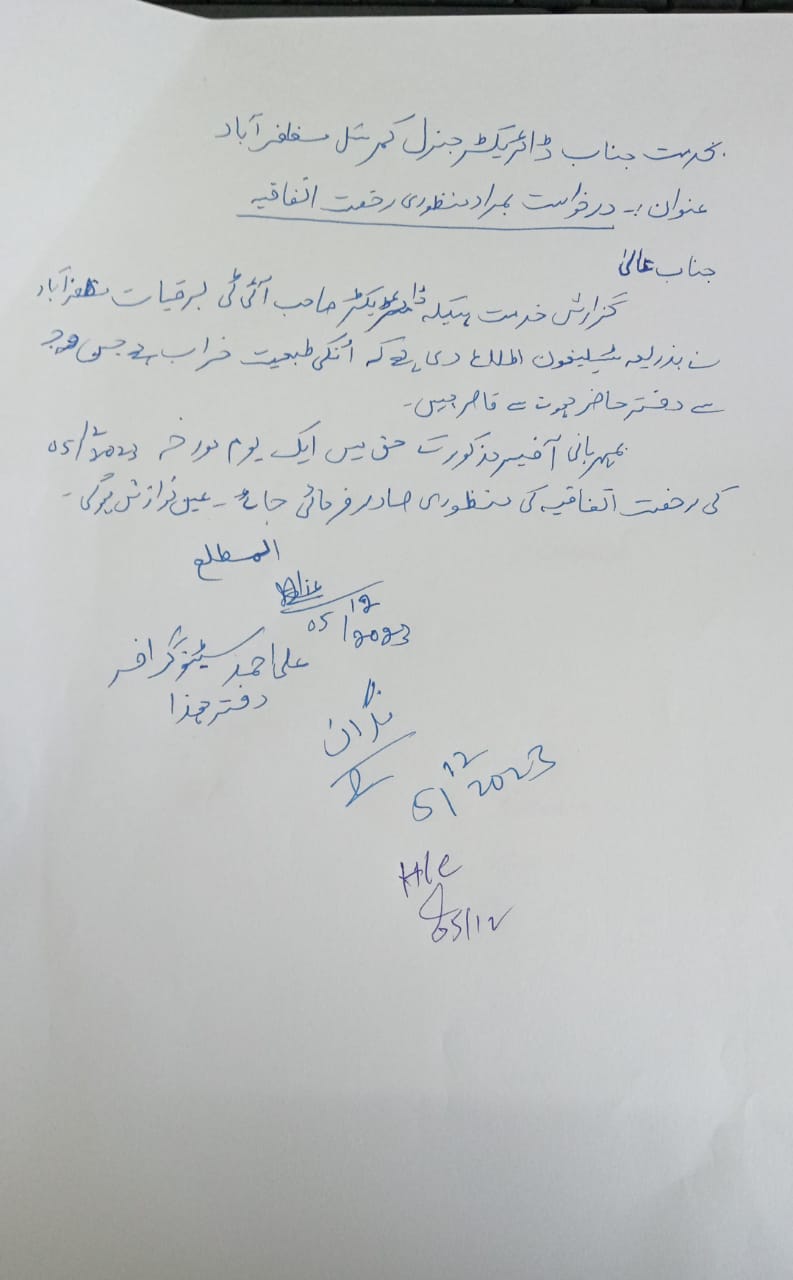 بخدمت جناب ڈائریکٹر جنرل کمرشل مظفرآباد
عنوان :۔ درخواست بمراد منظوری رخصت اتفاقیہ
جناب عالیٰ
گزارش خدمت ہیکہ ڈائریکٹر صاحب آئی ٹی برقیات مظفرآباد
نے بذریعہ ٹیلیفون اطلاع دی ہے کہ اُنکی طبعیت خراب ہے جس وجہ
سے دفتر حاضر ہونے سے قاصر ہیں۔
بمہربانی آفیسر مذکور کے حق میں ایک یوم مورخہ 05/12/2023
کی رخصت اتفاقیہ کی منظوری صادر فرمائی جائے۔ عین نوازش ہوگی۔
المطلع
05/12/2023
علی احمد سٹینوگرافر
دفتر ہذا
نگران
5/12/2023
H/C
05/12